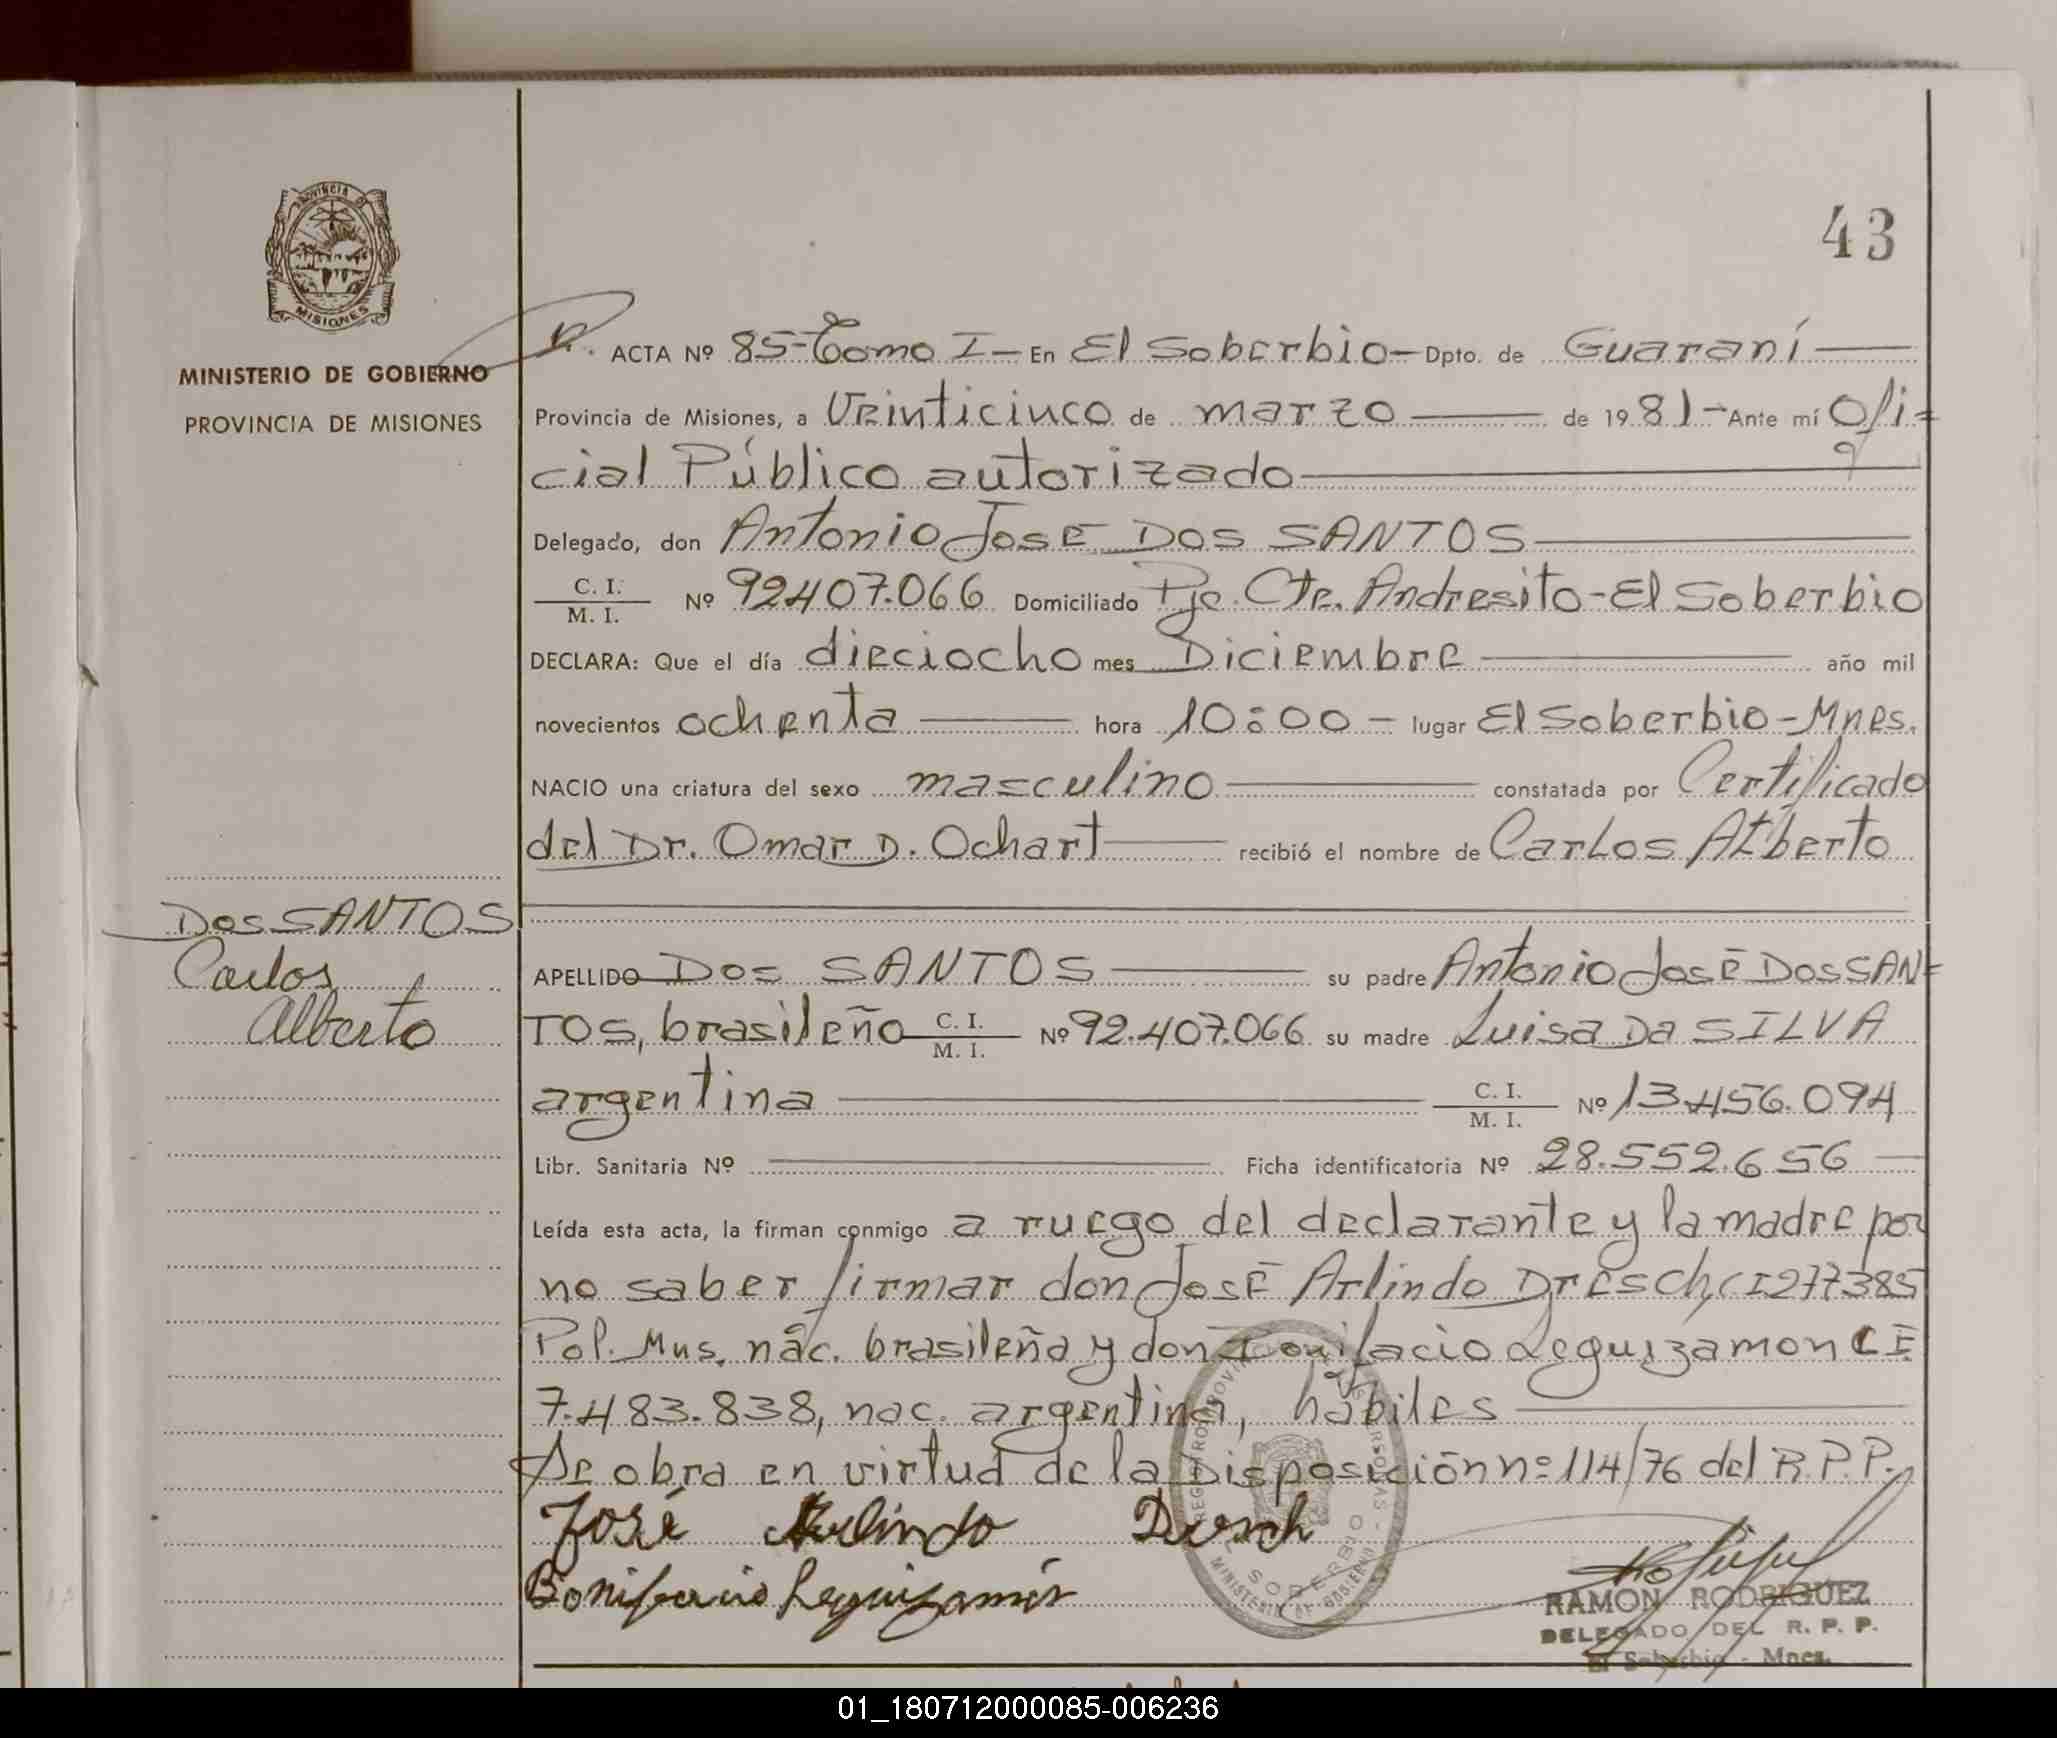 43
PROVINCIA DE
MISIONES
MINISTERIO DE GOBIERNO
PROVINCIA DE MISIONES
ACTA Nº 85-Tomo I- En El Soberbio- Dpto. de Guaraní
Provincia de Misiones, a Veinticinco de marzo de 1981- Ante mí Ofi=
cial Público autorizado
Delegado, don Antonio José Dos SANTOS
C. I. / M. I. Nº 92407.066 Domiciliado Pje. Cte. Andresito-El Soberbio
DECLARA: Que el día dieciocho mes Diciembre año mil
novecientos ochenta hora 10:00- lugar El Soberbio-Mnes.
NACIO una criatura del sexo masculino constatada por Certificado
del Dr. Omar D. Ochart recibió el nombre de Carlos Alberto
Dos SANTOS
Carlos
Alberto
APELLIDO Dos SANTOS su padre Antonio José Dos SAN=
TOS, brasileño C. I. / M. I. Nº 92.407.066 su madre Luisa Da SILVA
argentina C. I. / M. I. Nº 13.456.094
Libr. Sanitaria Nº Ficha identificatoria Nº 28.552.656
Leída esta acta, la firman conmigo a ruego del declarante y la madre por
no saber firmar don José Arlindo Dresch, CI277385
Pol. Mns. nac. brasileña y don Bonifacio Leguizamon CI
7.483.838, nac. argentina, hábiles
Se obra en virtud de la Disposición nº 114/76 del R.P.P.
José Arlindo Dresch
Bonifacio Leguizamón
SOBERBIO
MINISTERIO DE GOBIERNO
RAMON RODRIGUEZ
DELEGADO DEL R. P. P.
El Soberbio - Mnes.
01_180712000085-006236